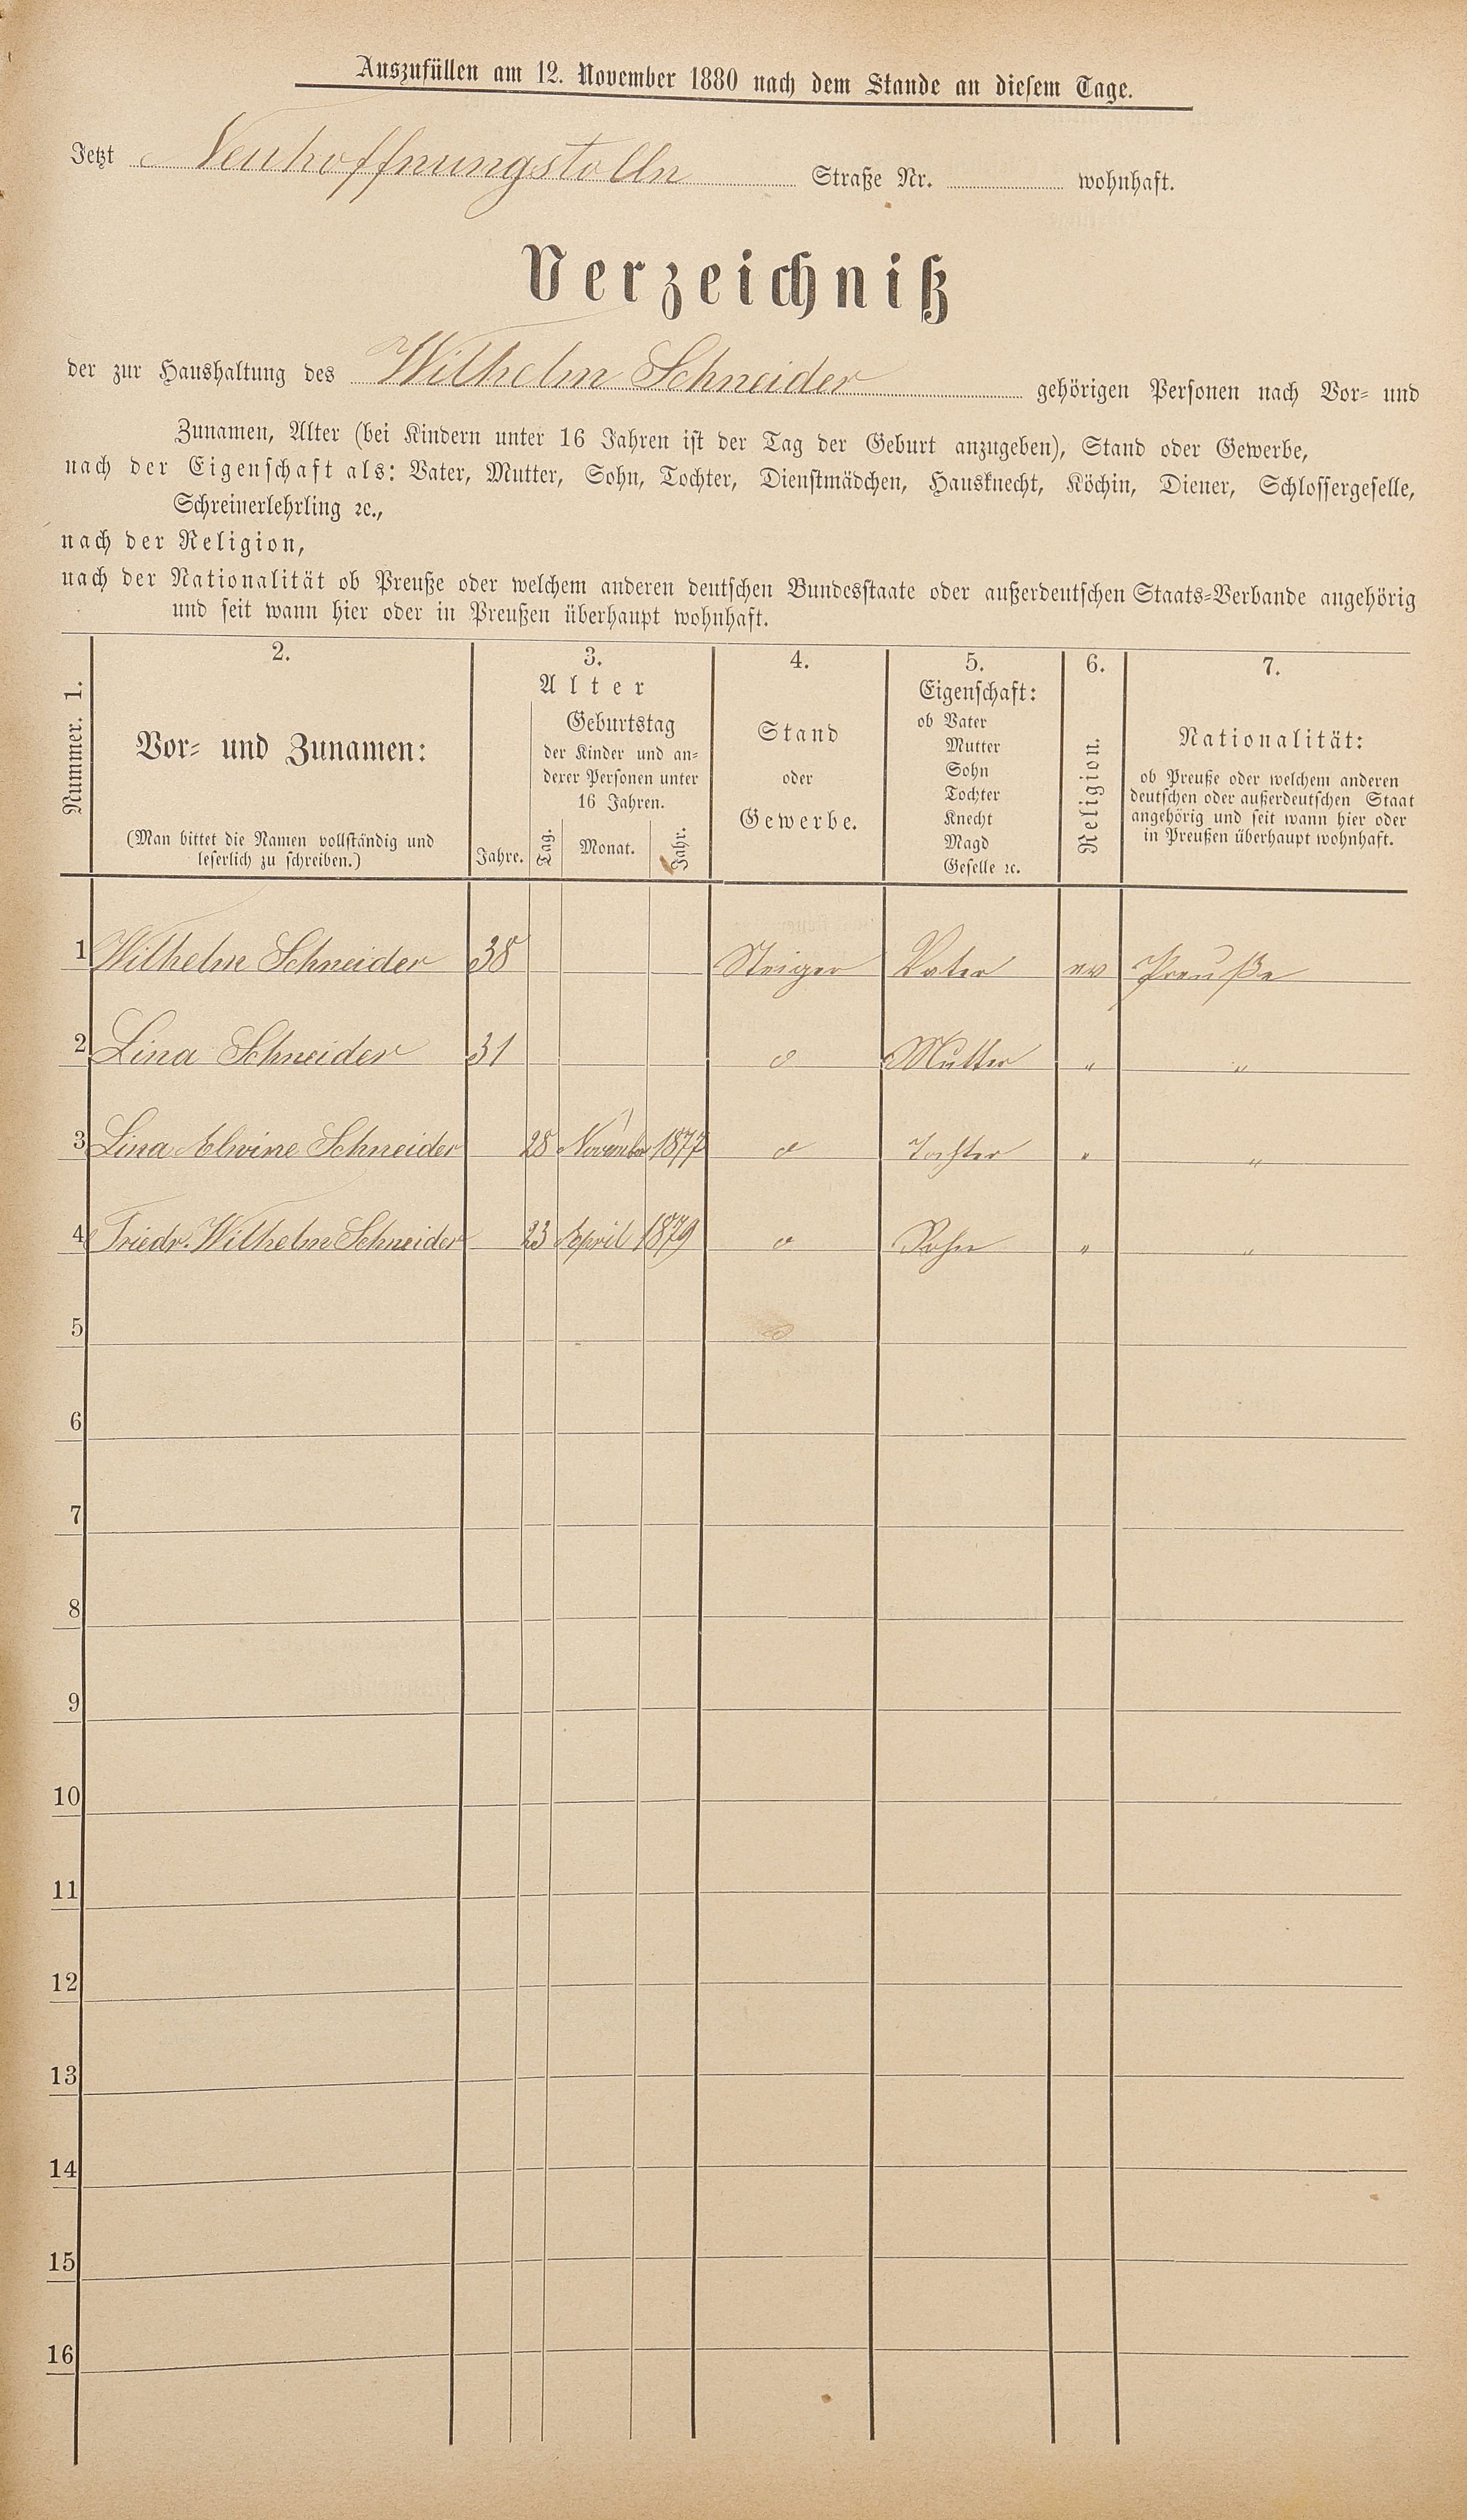 Auszufüllen am 12. November 1880 nach dem Stande an diesem Tage.
Jetzt Neuhoffnungstolln Straße Nr. wohnhaft.
Verzeichniß
der zur Haushaltung des Wilhelm Schneider gehörigen Personen nach Vor- und
Zunamen, Alter (bei Kindern unter 16 Jahren ist der Tag der Geburt anzugeben), Stand oder Gewerbe,
nach der Eigenschaft als: Vater, Mutter, Sohn, Tochter, Dienstmädchen, Hausknecht, Köchin, Diener, Schlossergeselle,
Schreinerlehrling ꝛc.,
nach der Religion,
nach der Nationalität ob Preuße oder welchem anderen deutschen Bundesstaate oder außerdeutschen Staats-Verbande angehörig
und seit wann hier oder in Preußen überhaupt wohnhaft.
Nummer. 1.
2.
Vor- und Zunamen:
(Man bittet die Namen vollständig und
leserlich zu schreiben.)
3.
Alter
Jahre.
Geburtstag
der Kinder und an-
derer Personen unter
16 Jahren.
Tag. Monat. Jahr.
4.
Stand
oder
Gewerbe.
5.
Eigenschaft:
ob Vater
Mutter
Sohn
Tochter
Knecht
Magd
Geselle ꝛc.
6.
Religion.
7.
Nationalität:
ob Preuße oder welchem anderen
deutschen oder außerdeutschen Staat
angehörig und seit wann hier oder
in Preußen überhaupt wohnhaft.
1 Wilhelm Schneider 38 Steiger Vater ev Preuße
2 Lina Schneider 31 o Mutter " "
3 Lina Elwine Schneider 28 November 1877 o Tochter " "
4 Friedr. Wilhelm Schneider 23 April 1879 o Sohn " "
5
6
7
8
9
10
11
12
13
14
15
16